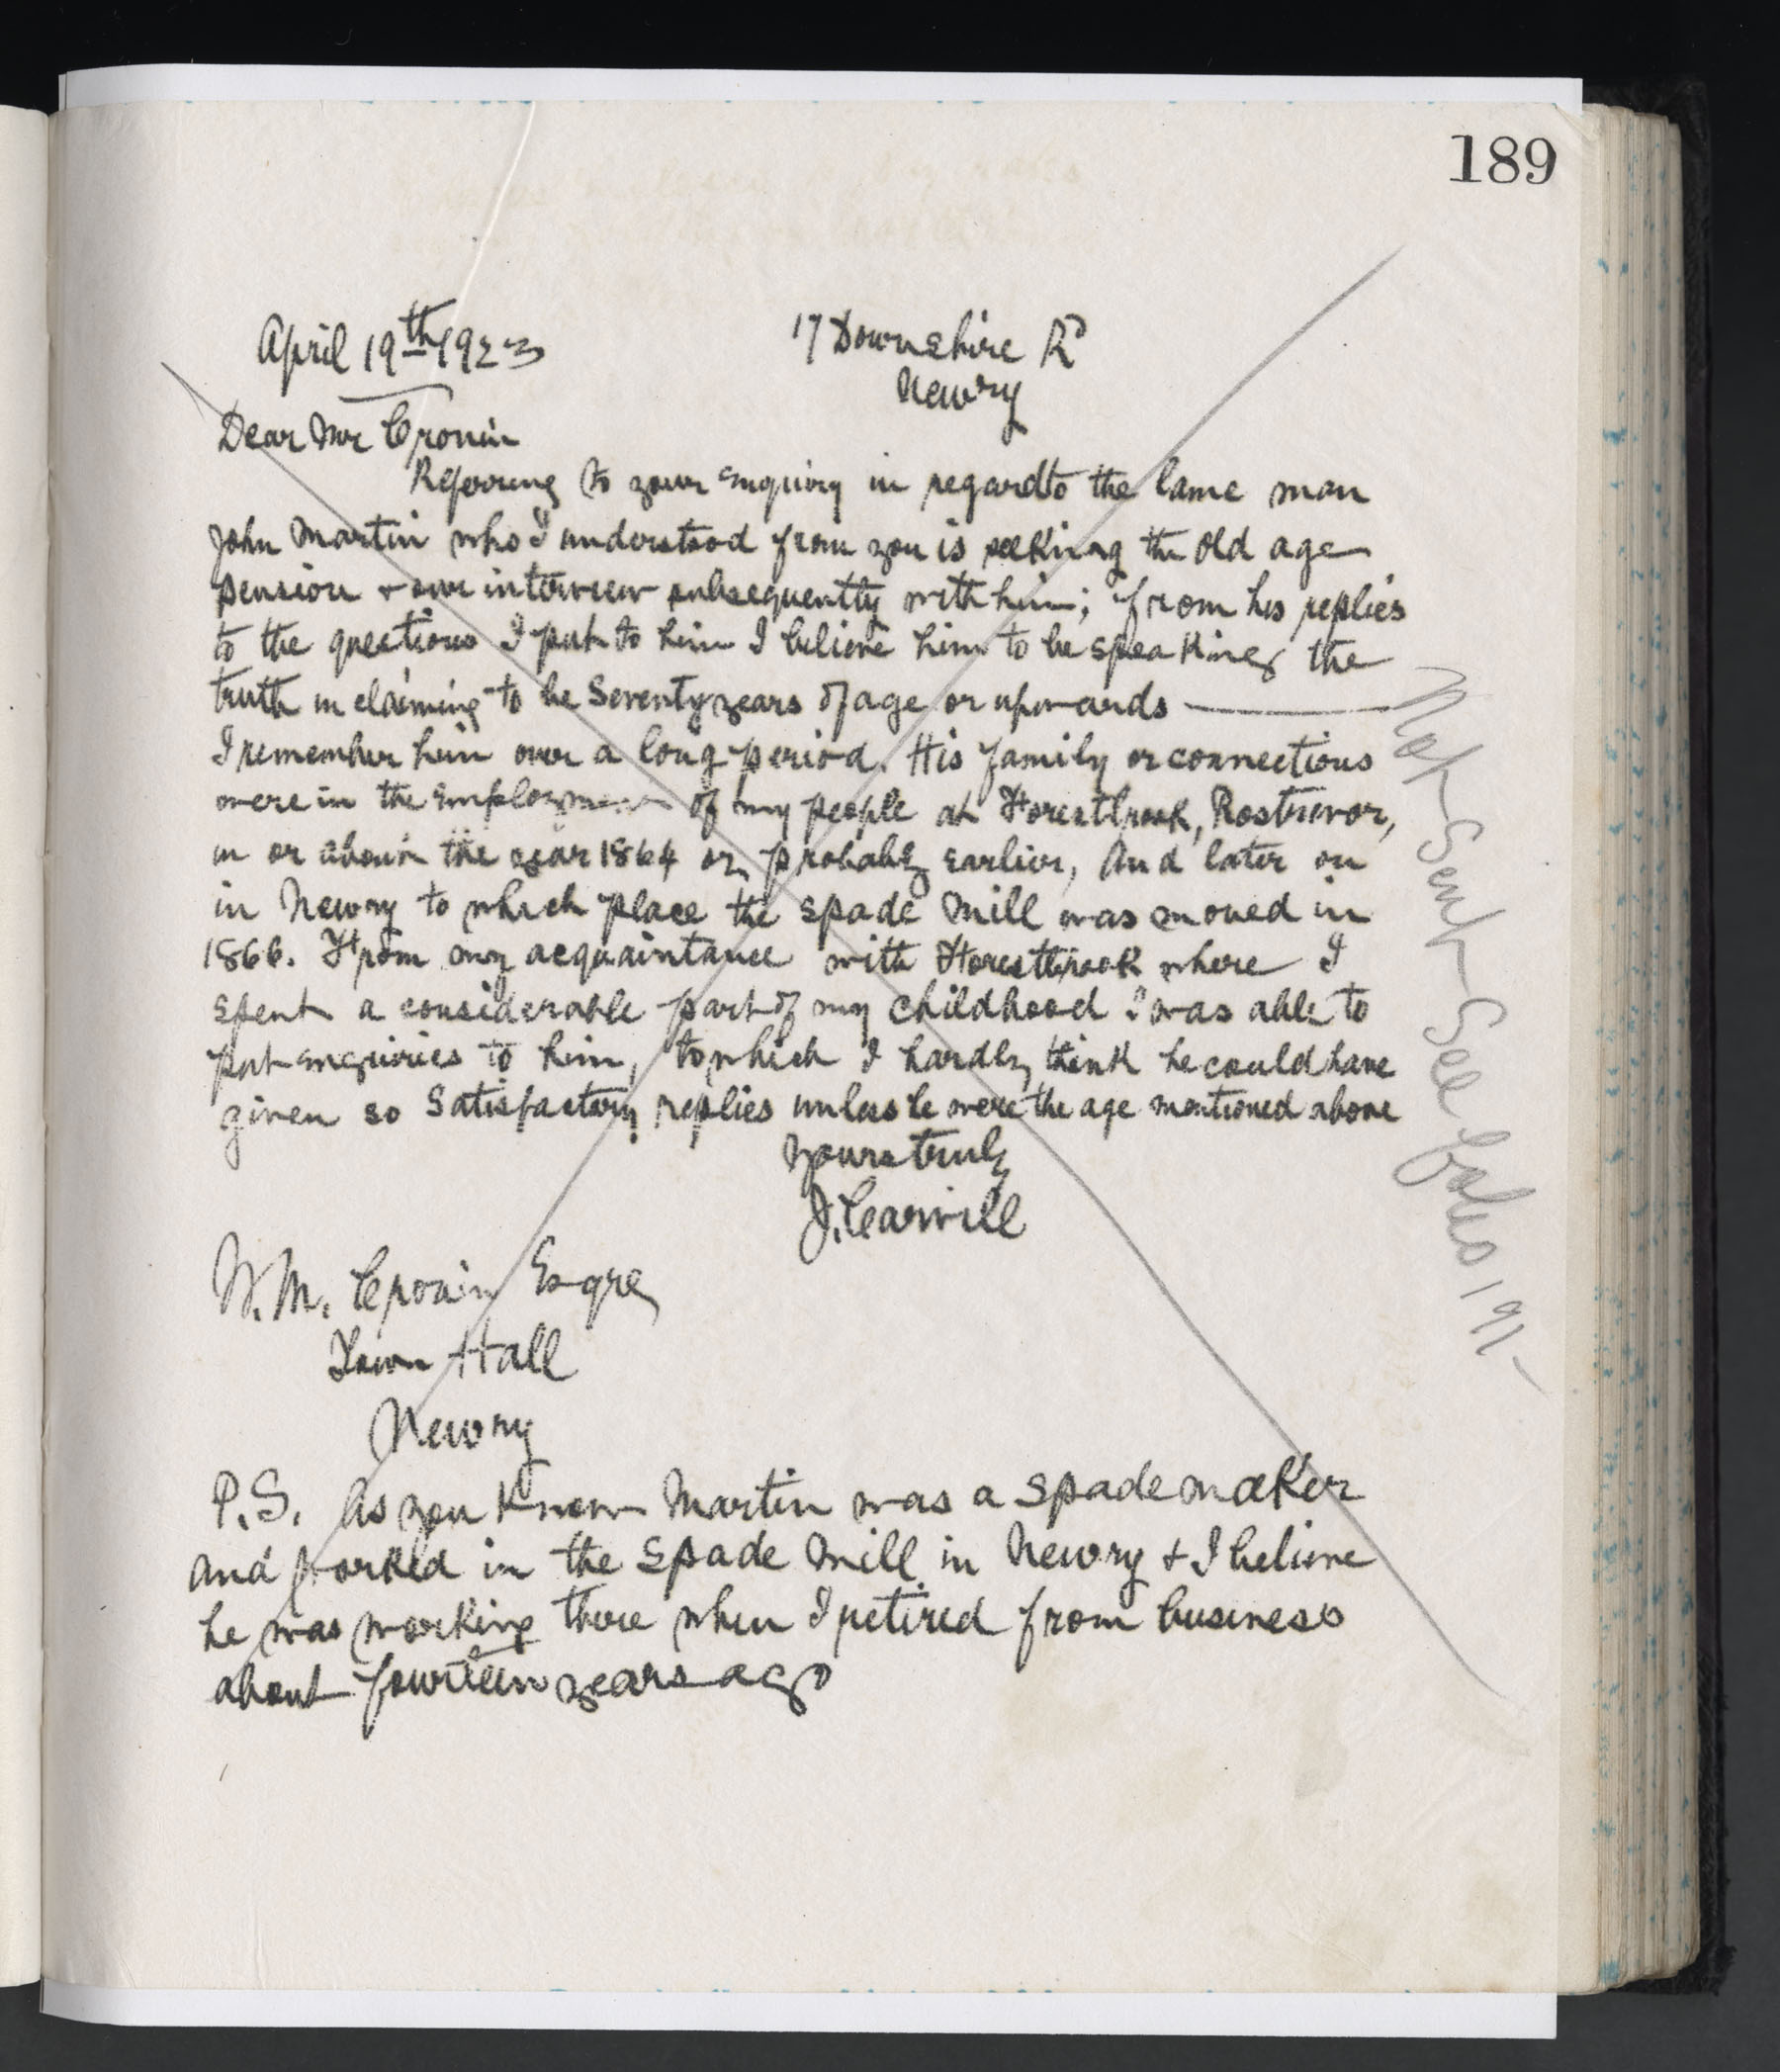 189
April 19th 1923
17 Downshire Rd
Newry
Dear Mr Cronin
Referring to your enquiry in regard to the lame man
John Martin who I understood from you is seeking the Old age
pension & our interview subsequently with him; from his replies
to the questions I put to him I believe him to be speaking the
truth in claiming to be Seventy years of age or upwards ———
I remember him over a long period. His family or connections
were in the employment of my people at Forestbrook, Rostrevor,
in or about the year 1864 or probably earlier, and later on
in Newry to which place the Spade Mill was moved in
1866. From my acquaintance with Forestbrook where I
spent a considerable part of my childhood I was able to
put enquiries to him, to which I hardly think he could have
given so Satisfactory replies unless he were the age mentioned above
Yours truly
J. Carvill
W. M. Cronin Esqre
Town Hall
Newry
P.S. As you Know Martin was a Spade maker
and worked in the Spade Mill in Newry & I believe
he was working there when I retired from business
about fourteen years ago
Not Sent See folio 191